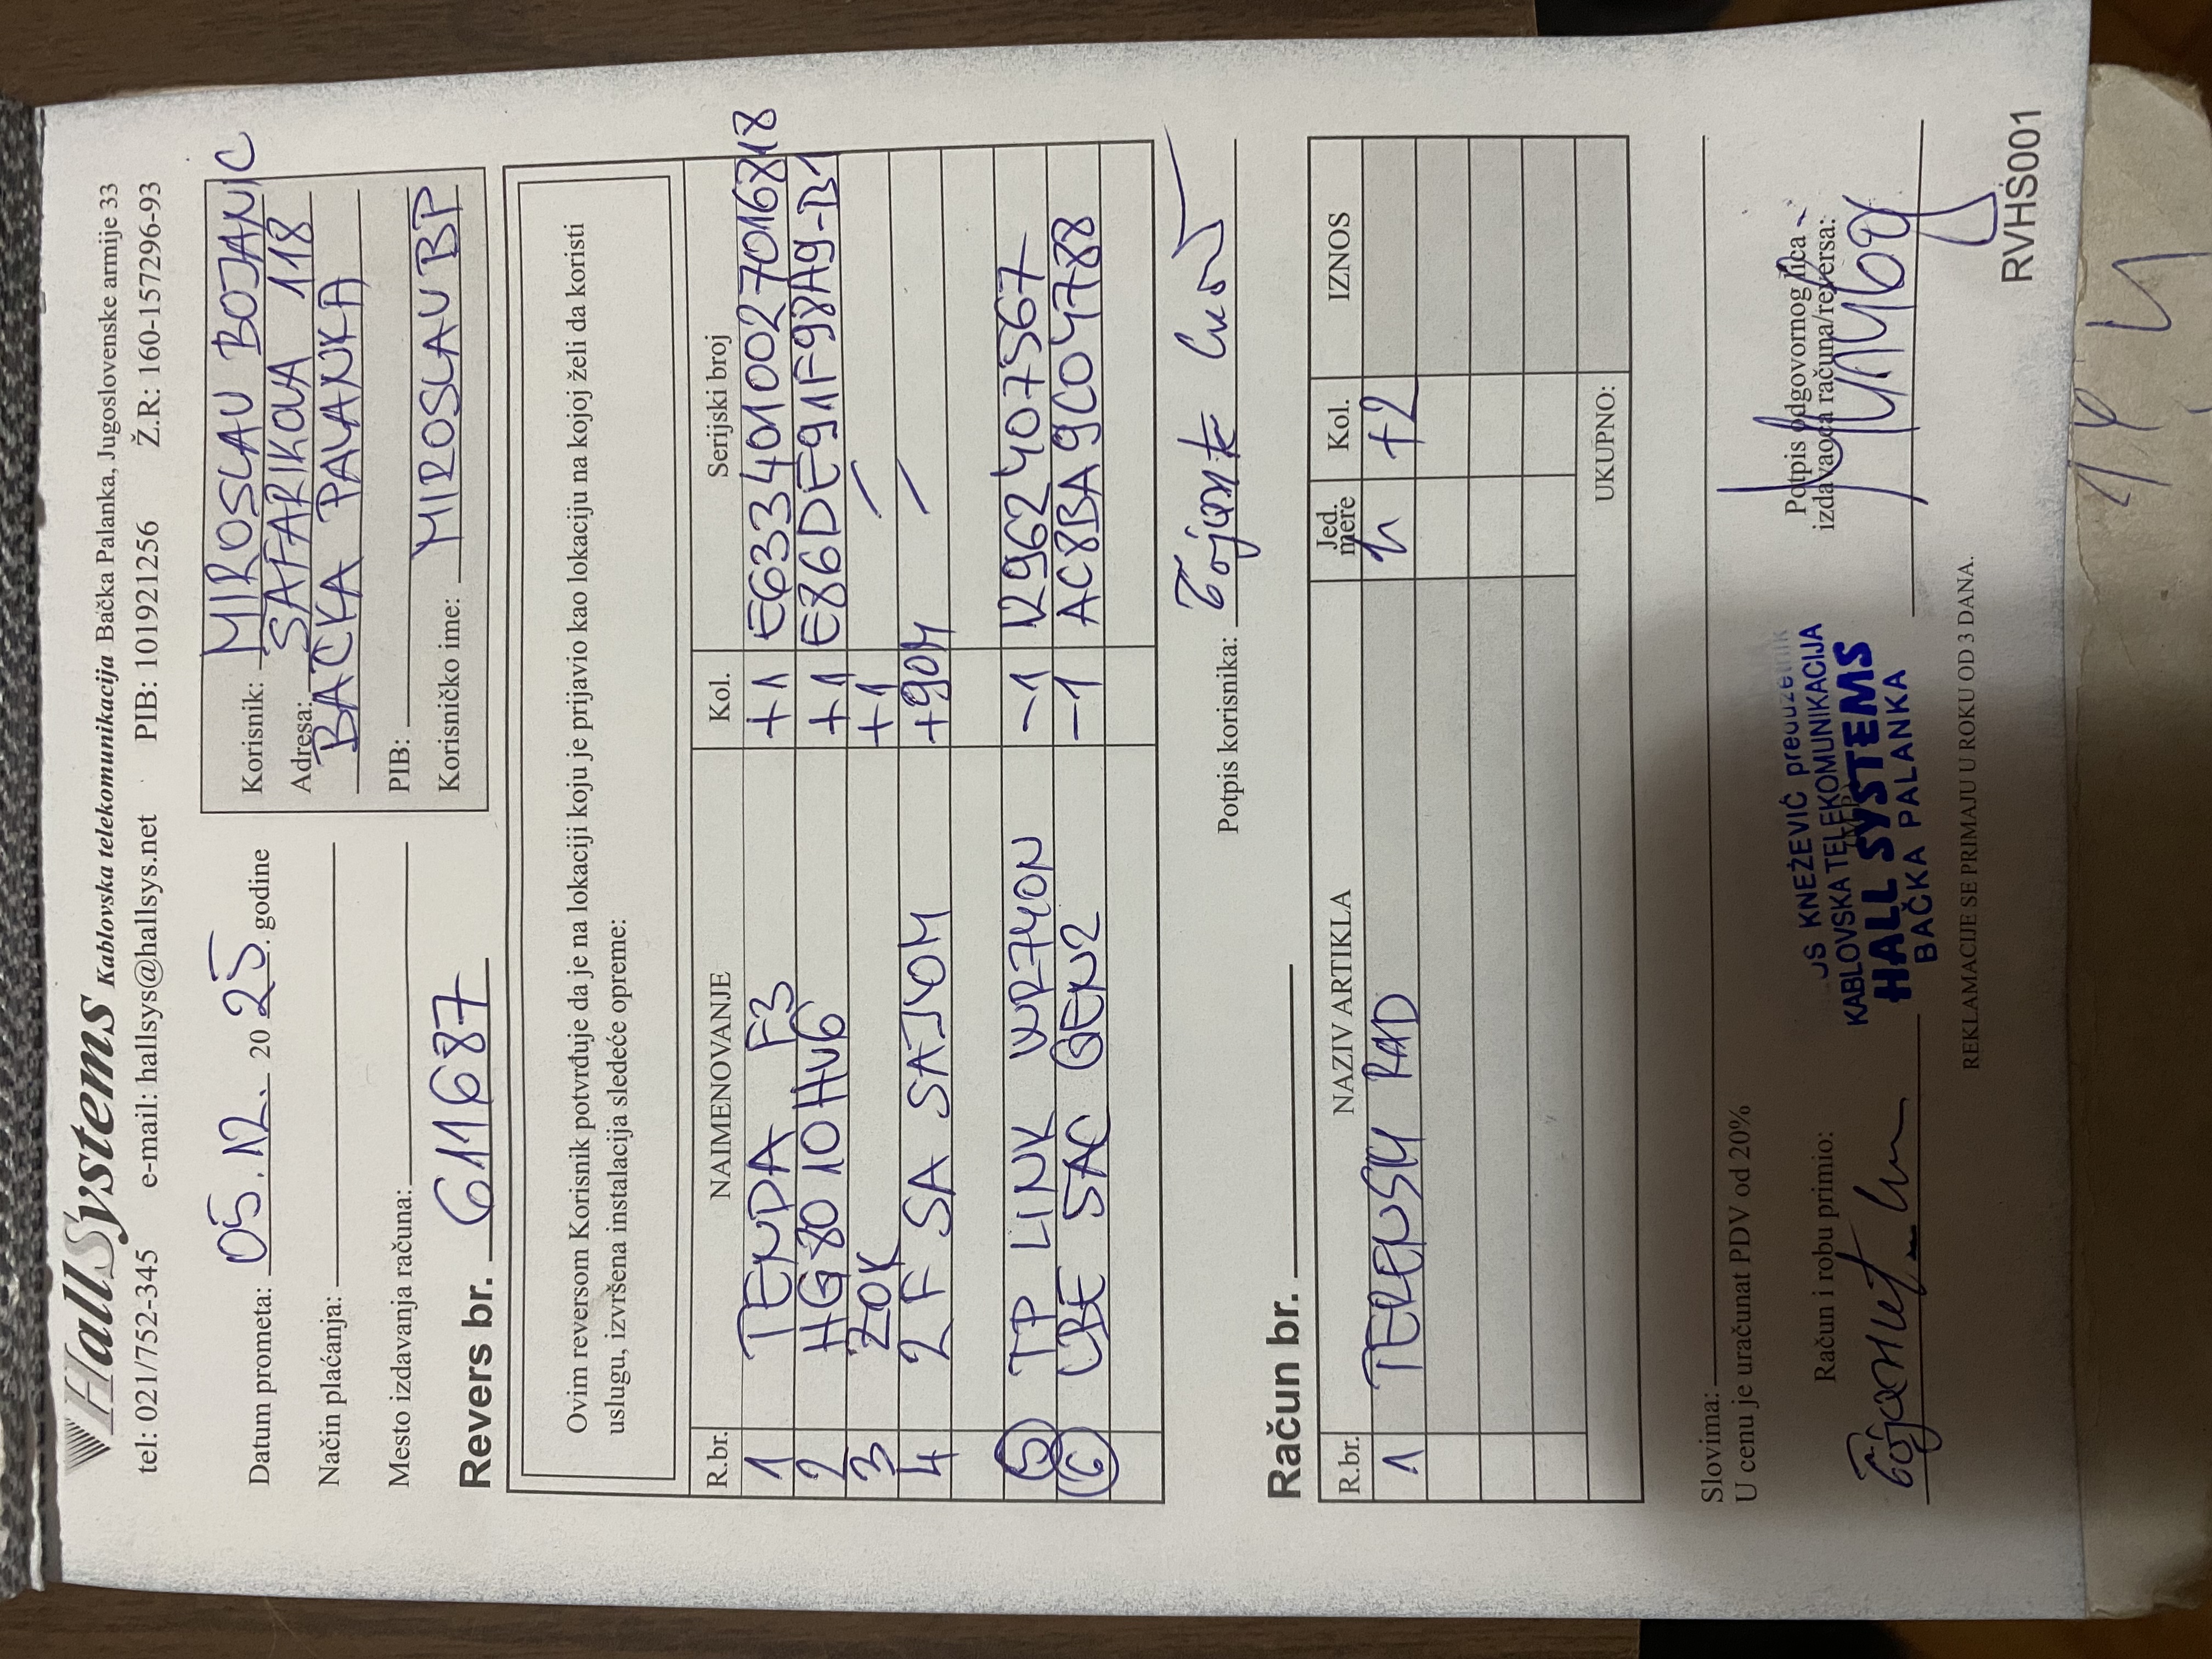 HallSystems Kablovska telekomunikacija Bačka Palanka, Jugoslovenske armije 33
tel: 021/752-345 e-mail: hallsys@hallsys.net PIB: 101921256 Ž.R.: 160-157296-93
Datum prometa: 05.12. 2025. godine
Način plaćanja:
Mesto izdavanja računa:
Revers br. 611687
Korisnik: MIROSLAV BOJANIC
Adresa: SAFARIKOVA 118
BACKA PALANKA
PIB:
Korisničko ime: MIROSLAVBP
Ovim reversom Korisnik potvrđuje da je na lokaciji koju je prijavio kao lokaciju na kojoj želi da koristi
uslugu, izvršena instalacija sledeće opreme:
R.br. NAIMENOVANJE Kol. Serijski broj
1 TENDA F3 +1 E6334010027016818
2 HG8010HV6 +1 E86DE91F98A9-B1
3 ZOK +1 /
4 2F SA SAJLOM +90M /
5 TP LINK WR740N -1 12962407567
6 LBE 5AC GEN2 -1 AC8BA9C04788
Potpis korisnika:
Račun br.
R.br. NAZIV ARTIKLA Jed. mere Kol. IZNOS
1 TERENSKI RAD h +2
UKUPNO:
Slovima:
U cenu je uračunat PDV od 20%
Račun i robu primio:
KNEŽEVIĆ preduzetnik
KABLOVSKA TELEKOMUNIKACIJA
HALL SYSTEMS
BAČKA PALANKA
Potpis odgovornog lica
izdavaoca računa/reversa:
REKLAMACIJE SE PRIMAJU U ROKU OD 3 DANA.
RVHS001